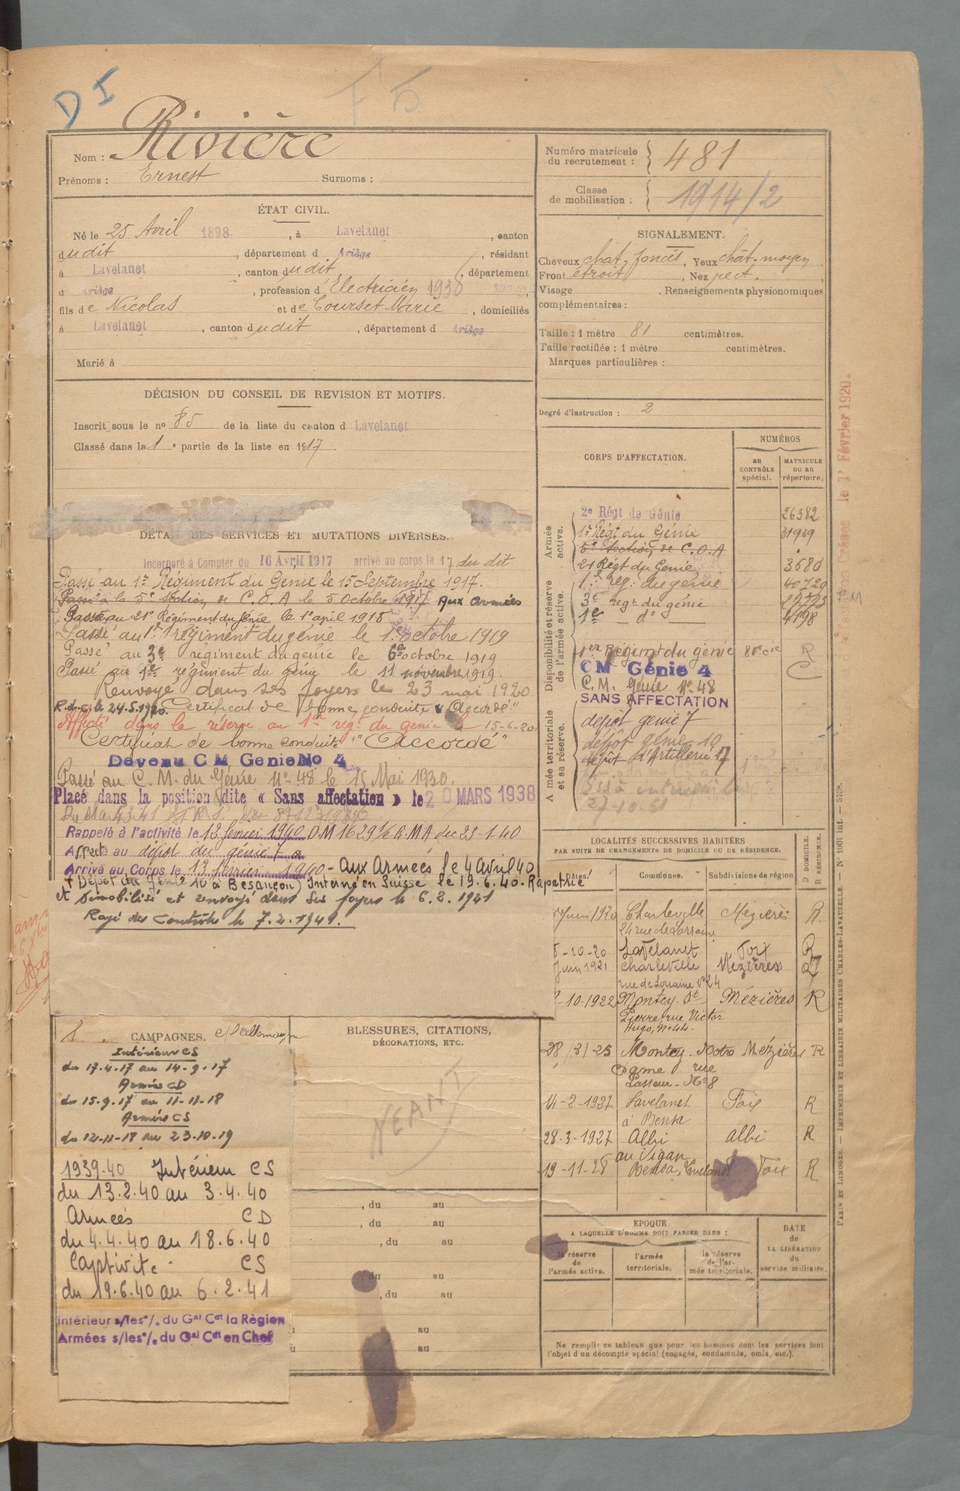 D I
Nom : Rivière
Prénoms : Ernest Surnoms :
ÉTAT CIVIL.
Né le 25 Avril 1898, à Lavelanet, canton
dudit, département d Ariège, résidant
à Lavelanet, canton dudit, département
d Ariège, profession d'Electricien 1930
fils de Nicolas et de Courset Marie, domiciliés
à Lavelanet, canton dudit, département d Ariège
Marié à
DÉCISION DU CONSEIL DE REVISION ET MOTIFS.
Inscrit sous le no 85 de la liste du canton d Lavelanet
Classé dans la 1e partie de la liste en 1917
DÉTAIL DES SERVICES ET MUTATIONS DIVERSES.
Incorporé à Compter du 16 Avril 1917 arrivé au corps le 17 du dit
Passé au 1er Régiment du Génie le 15 Septembre 1917.
Passé à la 5e Section de C.O.A le 5 Octobre 1917 Aux armées
Passé au 21e Régiment du Génie le 1er april 1918
Passé au 1er régiment du génie le 1er octobre 1919
Passé au 3e régiment du génie le 6 octobre 1919
Passé au 1er régiment du génie le 11 novembre 1919.
Renvoyé dans ses foyers le 23 mai 1920
R.d.c. le 24.5.1920. Certificat de bonne conduite "Accordé"
Affecté dans la réserve au 1er rég. du génie le 15-6-20
Certificat de bonne conduite "Accordé"
Devenu C M Genie No 4
Passé au C. M. du Génie No 48 le 15 Mai 1930.
Placé dans la position dite « Sans affectation » le 20 MARS 1938
Rappelé à l'activité le 13 février 1940 D M 1629 1/6 R M A du 23-1-40
Affecté au dépôt du génie 7
Arrivé au Corps le 13 février 1940 - aux Armées le 4 avril 40
(Dépôt du Génie 10 à Besançon) Interné en Suisse le 19.6.40 - Rapatrié
et démobilisé et renvoyé dans ses foyers le 6.2.1941
Rayé des contrôles le 7.2.1941.
CAMPAGNES.
Intérieur CS
du 17-4-17 au 14-9-17
Armée CD
du 15-9-17 au 11-11-18
Armée CS
du 12-11-18 au 23-10-19
1939-40 Intérieur CS
du 13-2-40 au 3-4-40
Armées CD
du 4-4-40 au 18-6-40
Captivité - CS
du 19-6-40 au 6-2-41
Intérieur s/les o/. du Gal Cdt la Région
Armées s/les o/. du Gal Cdt en Chef
BLESSURES, CITATIONS,
DÉCORATIONS, ETC.
NEANT
, du au
, du au
, du au
, du au
au
au
Numéro matricule du recrutement : 481
Classe de mobilisation : 1914/2
SIGNALEMENT.
Cheveux chat. foncés, Yeux chat. moyen
Front étroit, Nez rect.
Visage , Renseignements physionomiques
complémentaires :
Taille : 1 mètre 81 centimètres.
Taille rectifiée : 1 mètre centimètres.
Marques particulières :
Degré d'instruction : 2
CORPS D'AFFECTATION.
NUMÉROS
AU CONTRÔLE spécial.
MATRICULE OU AU répertoire.
Armée active.
2e Régt de Génie 26382
1er Régt du Génie 31929
5e Section de C.O.A
21 Régt du Génie 3680
1er rég. du génie 40720
Disponibilité et réserve de l'armée active.
3e régt du génie
1er do 4198
1er Régiment du génie R
CM Génie 4 C
C. M. Génie No 48
SANS AFFECTATION
Armée territoriale et sa réserve.
dépôt génie 7
dépôt génie 10
dépôt d'Artillerie 17
LOCALITÉS SUCCESSIVES HABITÉES
PAR SUITE DE CHANGEMENTS DE DOMICILE OU DE RÉSIDENCE.
Dates. Communes. Subdivisions de région D. DOMICILE. R. RÉSIDENCE.
Juin 1920 Charleville Mézières R
24 rue de Lorraine
-10-20 Lavelanet Foix
Juin 1921 Charleville Mézières
rue de Lorraine No 24
-10.1922 Montcy-St- Mézières R
Pierre, rue Victor
Hugo, No 44
Montcy-Notre Mézières R
Dame rue
Pasteur - No 8
14-2-1927 Lavelanet Foix R
à Bensa
28-3-1927 Albi Albi R
au Vigan
19-11-28 Bensa, Lavelanet Foix R
EPOQUE
A LAQUELLE L'HOMME DOIT PASSER DANS :
la réserve de l'armée active.
l'armée territoriale.
la réserve de l'armée territoriale.
DATE de LA LIBÉRATION du service militaire.
Ne remplir ce tableau que pour les hommes dont les services font
l'objet d'un décompte spécial (engagés, condamnés, omis, etc.).
le 1er Février 1920.
PARIS ET LIMOGES. — IMPRIMERIE ET LIBRAIRIE MILITAIRES CHARLES-LAVAUZELLE.